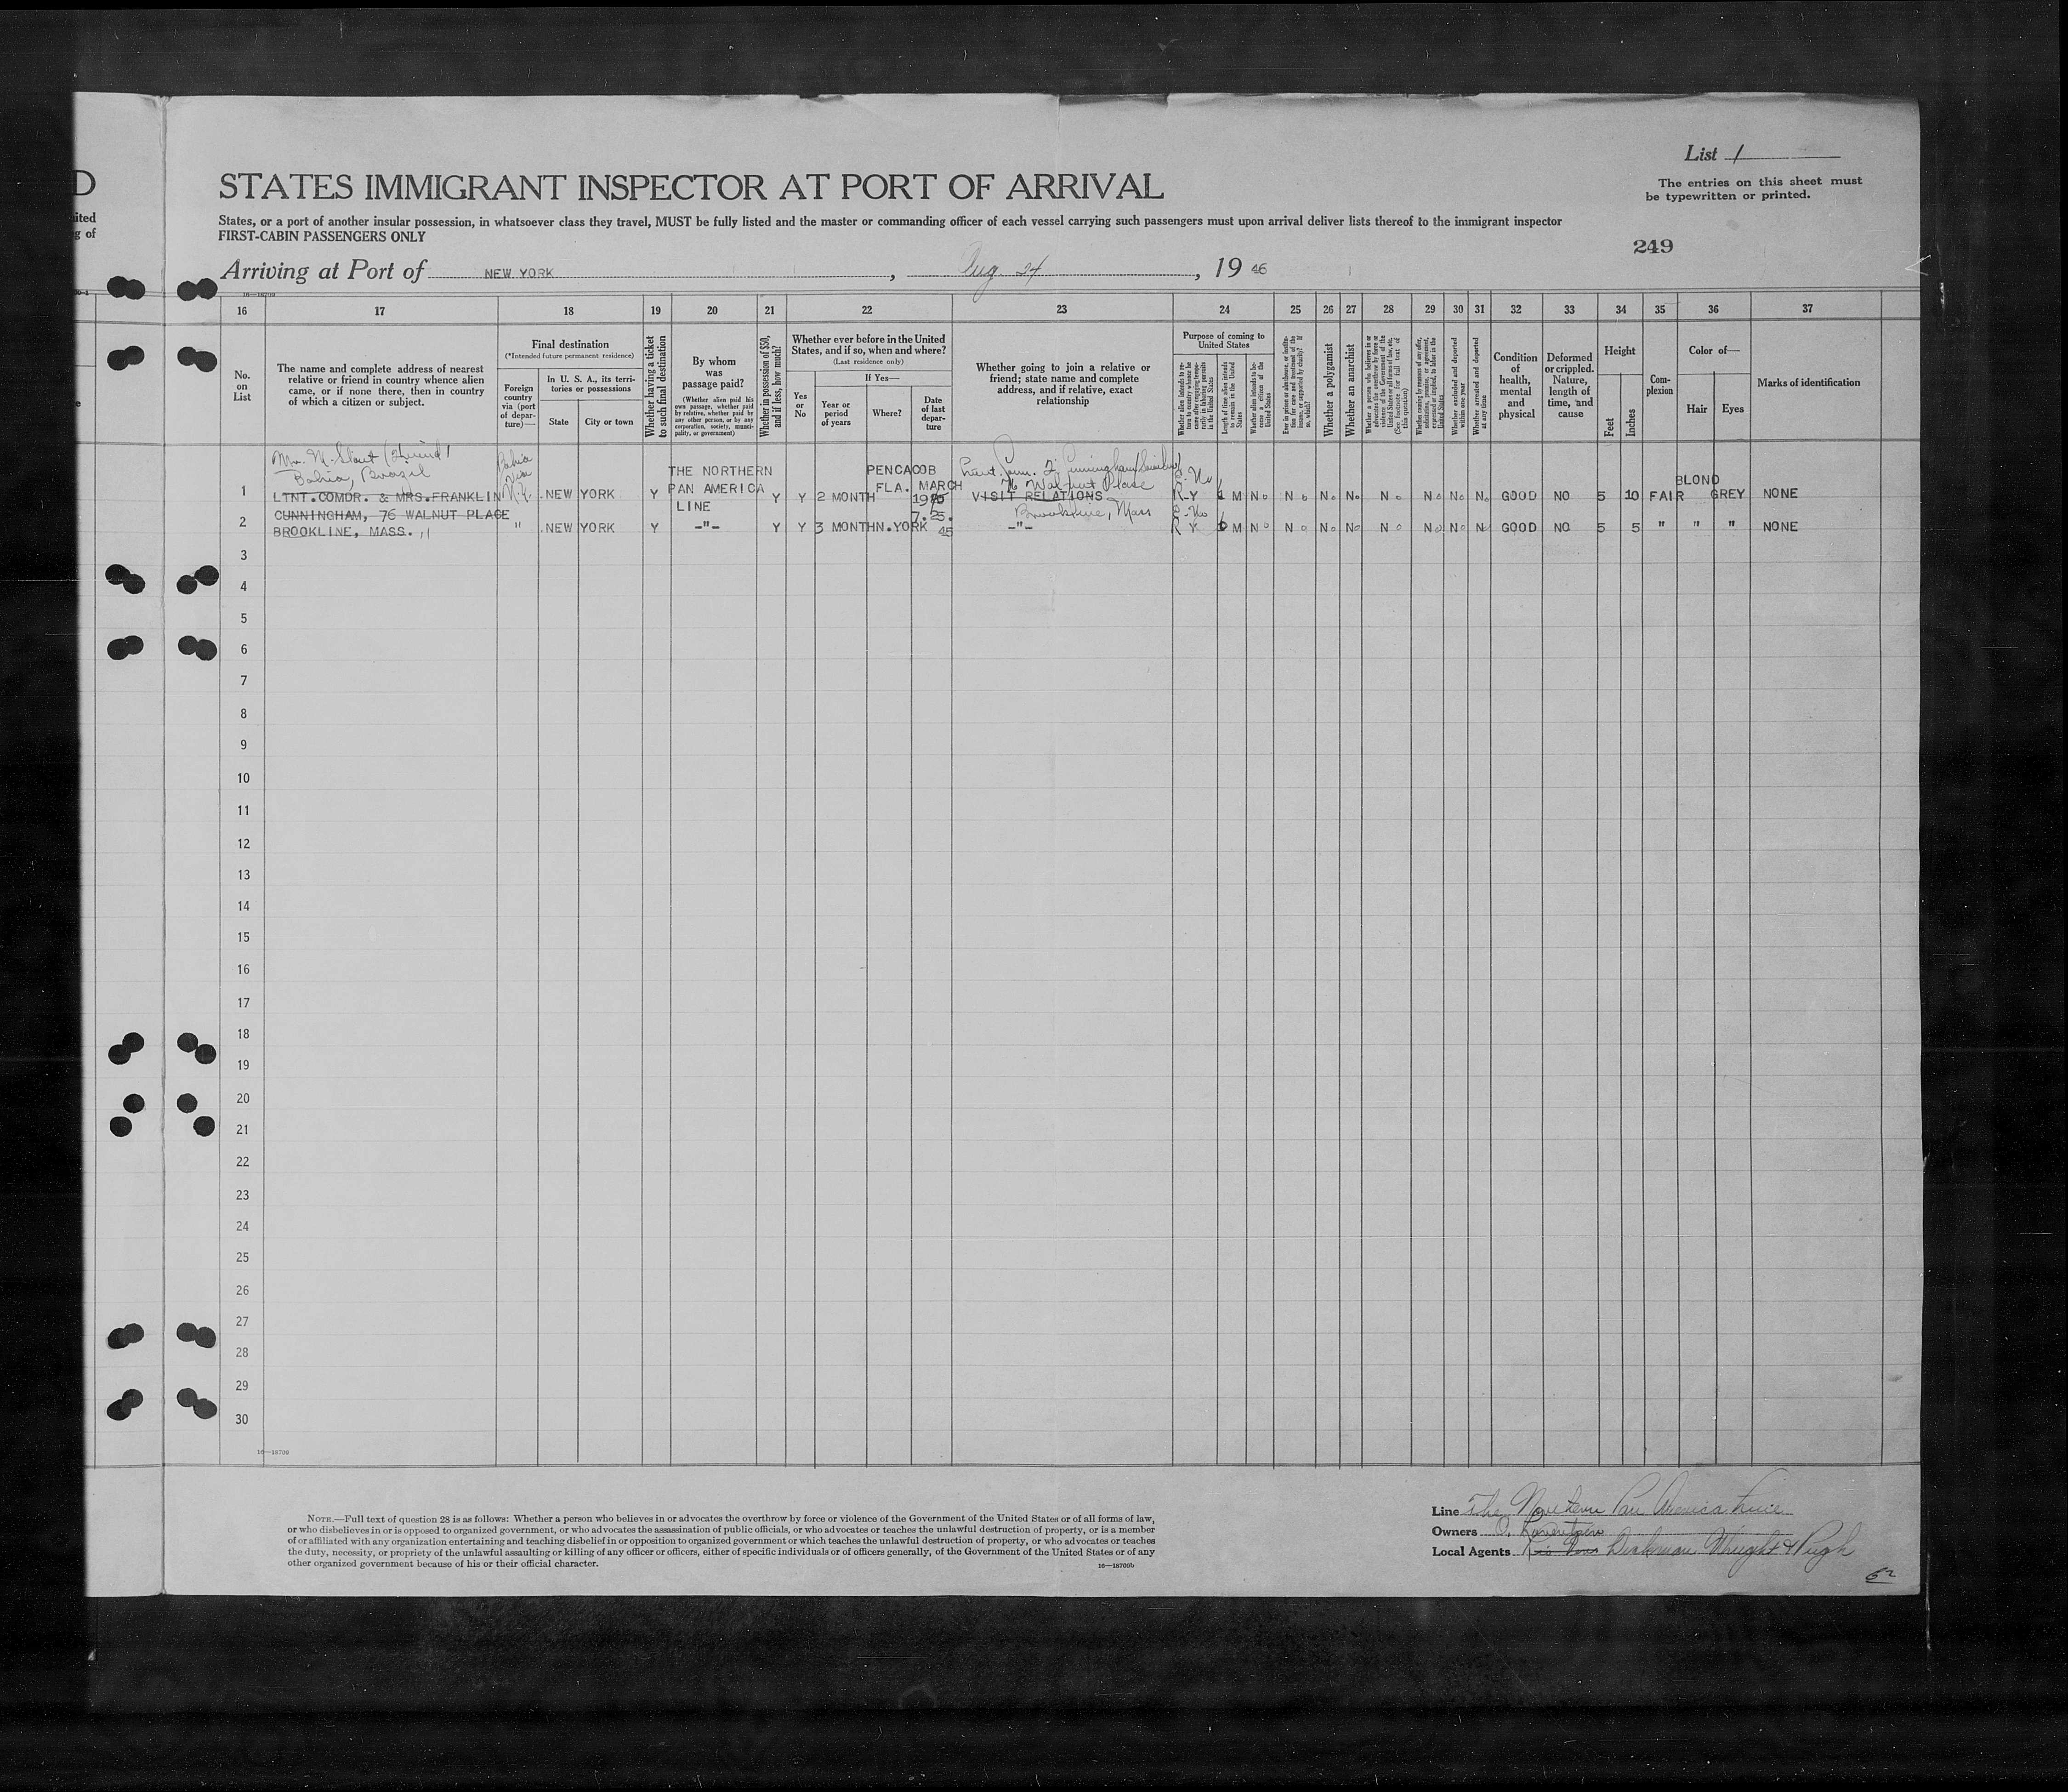 List 1
The entries on this sheet must
be typewritten or printed.
D
STATES IMMIGRANT INSPECTOR AT PORT OF ARRIVAL
ited
g of
States, or a port of another insular possession, in whatsoever class they travel, MUST be fully listed and the master or commanding officer of each vessel carrying such passengers must upon arrival deliver lists thereof to the immigrant inspector
FIRST-CABIN PASSENGERS ONLY
249
Arriving at Port of NEW YORK, Aug 24, 19 46
16—18709
16 17 18 19 20 21 22 23 24 25 26 27 28 29 30 31 32 33 34 35 36 37
No.
on
List
The name and complete address of nearest
relative or friend in country whence alien
came, or if none there, then in country
of which a citizen or subject.
Final destination
(*Intended future permanent residence)
Foreign
country
via (port
of depar-
ture)—
In U. S. A., its terri-
tories or possessions
State
City or town
Whether having a ticket
to such final destination
By whom
was
passage paid?
(Whether alien paid his
own passage, whether paid
by relative, whether paid by
any other person, or by any
corporation, society, munici-
pality, or government)
Whether in possession of $50,
and if less, how much?
Whether ever before in the United
States, and if so, when and where?
(Last residence only)
Yes
or
No
If Yes—
Year or
period
of years
Where?
Date
of last
depar-
ture
Whether going to join a relative or
friend; state name and complete
address, and if relative, exact
relationship
Purpose of coming to
United States
Whether alien intends to re-
turn to country whence he
came after engaging tempo-
rarily in laboring pursuits
in the United States
Length of time alien intends
to remain in the United
States
Whether alien intends to be-
come a citizen of the
United States
Ever in prison or almshouse, or institu-
tion for care and treatment of the
insane, or supported by charity? If
so, which?
Whether a polygamist
Whether an anarchist
Whether a person who believes in or
advocates the overthrow by force or
violence of the Government of the
United States or all forms of law, etc.
(See footnote for full text of
this question)
Whether coming by reason of any offer,
solicitation, promise, or agreement,
expressed or implied, to labor in the
United States
Whether excluded and deported
within one year
Whether arrested and deported
at any time
Condition
of
health,
mental
and
physical
Deformed
or crippled.
Nature,
length of
time, and
cause
Height
Feet
Inches
Com-
plexion
Color of—
Hair
Eyes
Marks of identification
Mr. M. Stout (Friend)
Bahia, Brazil
Bahia
via
N.Y.
1 LTNT.COMDR. & MRS.FRANKLIN
CUNNINGHAM, 76 WALNUT PLACE
BROOKLINE, MASS. "
NEW YORK Y
THE NORTHERN
PAN AMERICA
LINE
Y Y 2 MONTH
PENCACOB
FLA. MARCH
Cunningham
76 Walnut Place
VISIT RELATIONS
Brookline, Mass
R-Y M No No No No No No No No GOOD NO 5 10 FAIR BLOND GREY NONE
2 " NEW YORK Y —"— Y Y 3 MONTH N.YORK 7.25.
45 —"— R Y M No No No No No No No No GOOD NO 5 5 " " " NONE
3
4
5
6
7
8
9
10
11
12
13
14
15
16
17
18
19
20
21
22
23
24
25
26
27
28
29
30
16—18709
NOTE.—Full text of question 28 is as follows: Whether a person who believes in or advocates the overthrow by force or violence of the Government of the United States or of all forms of law,
or who disbelieves in or is opposed to organized government, or who advocates the assassination of public officials, or who advocates or teaches the unlawful destruction of property, or is a member
of or affiliated with any organization entertaining and teaching disbelief in or opposition to organized government or which teaches the unlawful destruction of property, or who advocates or teaches
the duty, necessity, or propriety of the unlawful assaulting or killing of any officer or officers, either of specific individuals or of officers generally, of the Government of the United States or of any
other organized government because of his or their official character.
16—18709b
Line The Northern Pan America Line
Owners O. Lorentzen
Local Agents Dichmann Wright & Pugh